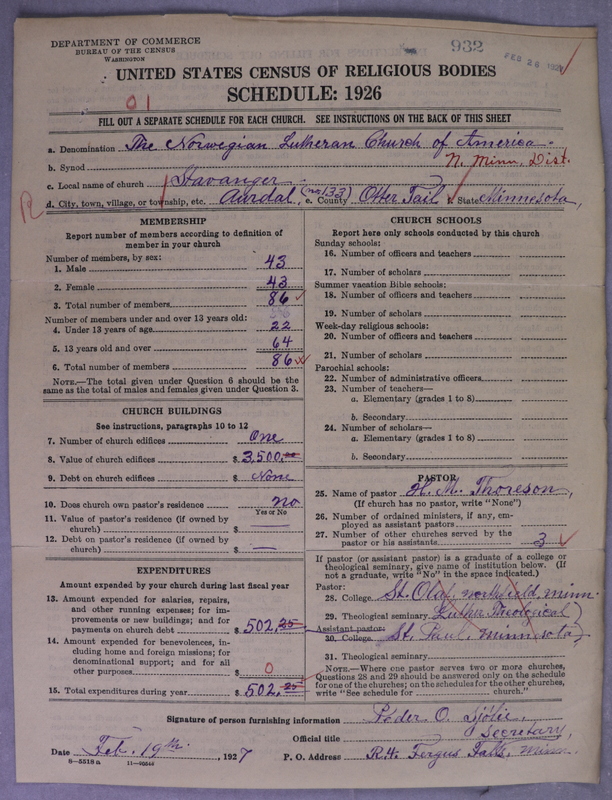 DEPARTMENT OF COMMERCE
BUREAU OF THE CENSUS
WASHINGTON
932
FEB 28 192
UNITED STATES CENSUS OF RELIGIOUS BODIES
SCHEDULE: 1926
01
FILL OUT A SEPARATE SCHEDULE FOR EACH CHURCH. SEE INSTRUCTIONS ON THE BACK OF THIS SHEET
a. Denomination The Norwegian Lutheran Church of America.
b. Synod N. Minn. Dist.
c. Local name of church Stavanger
R
d. City, town, village, or township, etc. Aurdal, (no 133) e. County Otter Tail f. State Minnesota,
MEMBERSHIP
Report number of members according to definition of
member in your church
Number of members, by sex:
1. Male 43
2. Female 43
3. Total number of members 86
Number of members under and over 13 years old:
4. Under 13 years of age 22
5. 13 years old and over 64
6. Total number of members 86
NOTE.—The total given under Question 6 should be the
same as the total of males and females given under Question 3.
CHURCH BUILDINGS
See instructions, paragraphs 10 to 12
7. Number of church edifices One
8. Value of church edifices $ 3,500.00
9. Debt on church edifices $ None
10. Does church own pastor's residence no
Yes or No
11. Value of pastor's residence (if owned by
church) $ —
12. Debt on pastor's residence (if owned by
church) $ —
EXPENDITURES
Amount expended by your church during last fiscal year
13. Amount expended for salaries, repairs,
and other running expenses; for im-
provements or new buildings; and for
payments on church debt $ 502.25
14. Amount expended for benevolences, in-
cluding home and foreign missions; for
denominational support; and for all
other purposes $ 0
15. Total expenditures during year $ 502.25
CHURCH SCHOOLS
Report here only schools conducted by this church
Sunday schools:
16. Number of officers and teachers
17. Number of scholars
Summer vacation Bible schools:
18. Number of officers and teachers
19. Number of scholars
Week-day religious schools:
20. Number of officers and teachers
21. Number of scholars
Parochial schools:
22. Number of administrative officers
23. Number of teachers—
a. Elementary (grades 1 to 8)
b. Secondary
24. Number of scholars—
a. Elementary (grades 1 to 8)
b. Secondary
PASTOR
25. Name of pastor H. M. Thoreson,
(If church has no pastor, write "None")
26. Number of ordained ministers, if any, em-
ployed as assistant pastors
27. Number of other churches served by the
pastor or his assistants 3
If pastor (or assistant pastor) is a graduate of a college or
theological seminary, give name of institution below. (If
not a graduate, write "No" in the space indicated.)
Pastor:
28. College St. Olaf, Northfield, Minn.
29. Theological seminary Luther Theological
Assistant pastor:
30. College St. Paul, Minnesota
31. Theological seminary
NOTE.—Where one pastor serves two or more churches,
Questions 28 and 29 should be answered only on the schedule
for one of the churches; on the schedules for the other churches,
write "See schedule for church."
Signature of person furnishing information Peder O. Sjolie,
Official title Secretary,
Date Feb. 19th., 1927 P. O. Address R.4. Fergus Falls, Minn.
8—5518 a 11—